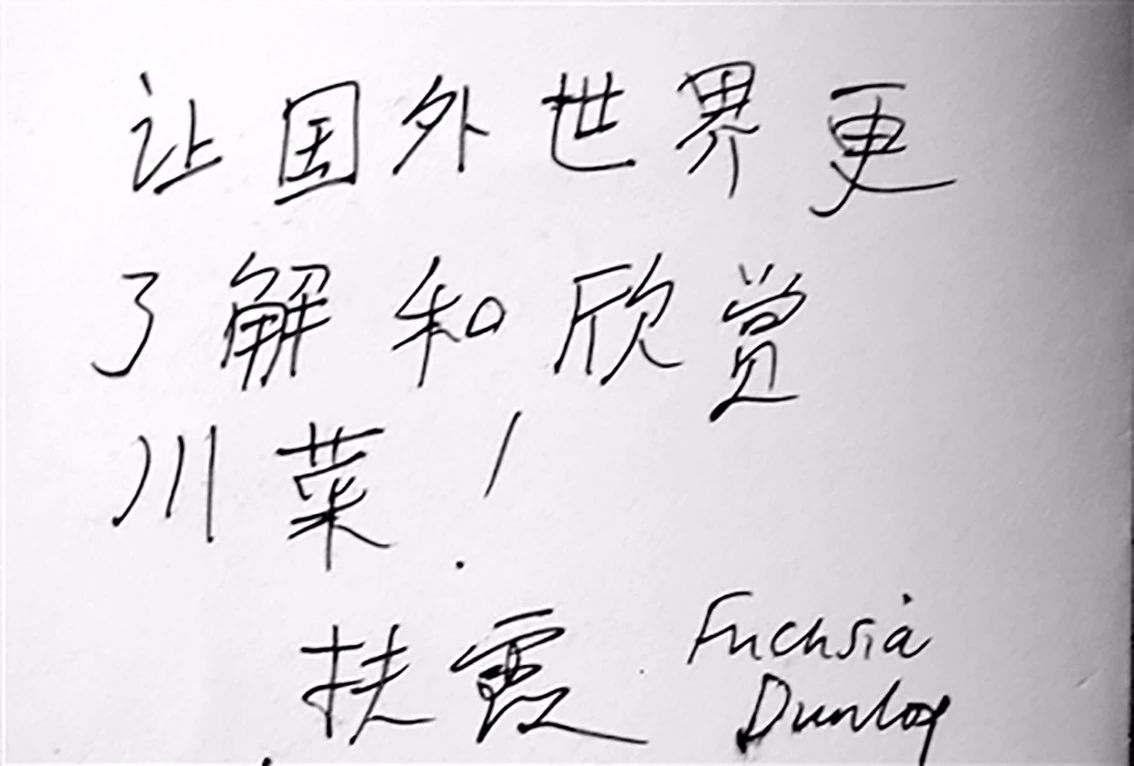 让国外世界更
了解和欣赏
川菜!
扶霞 Fuchsia
Dunlop